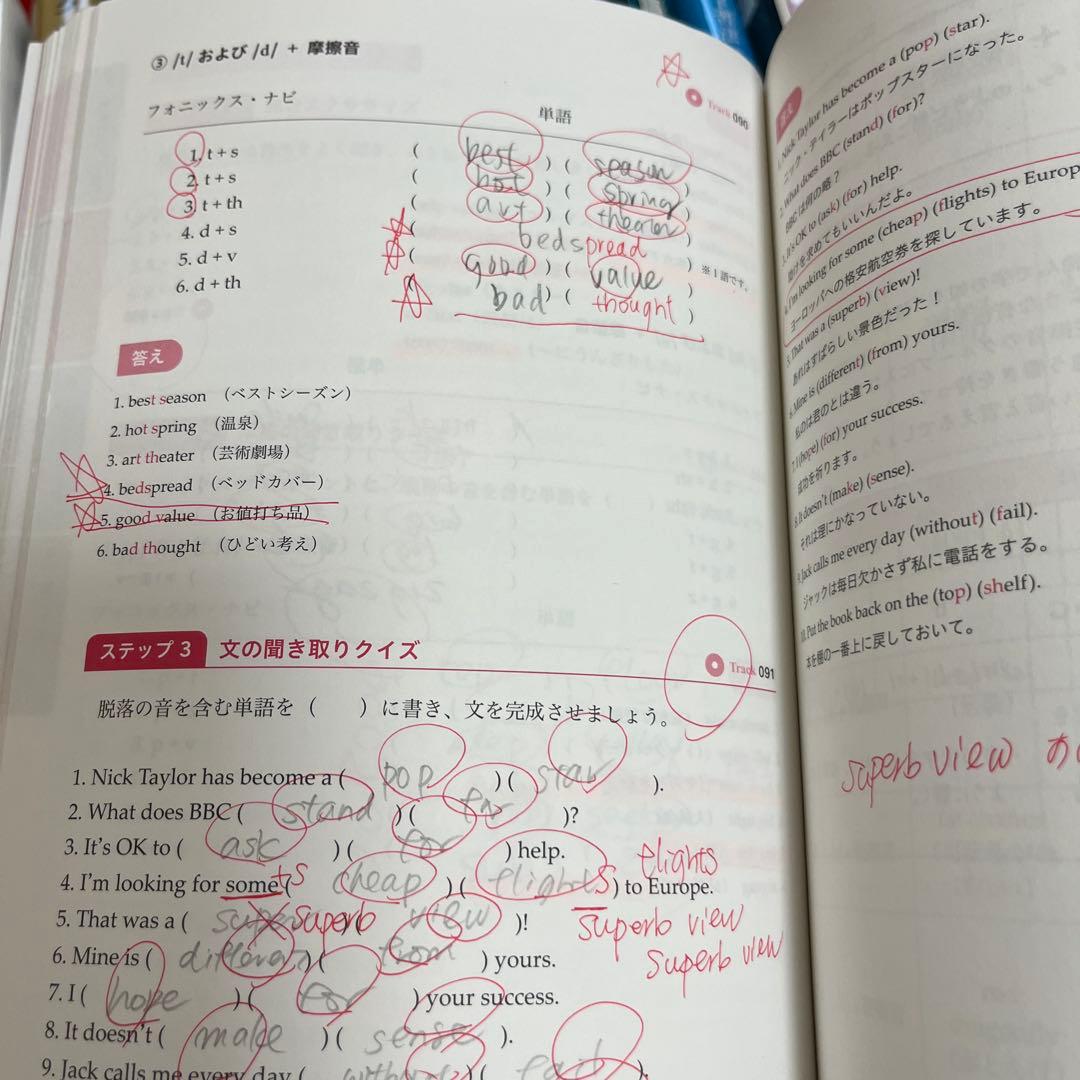 ③ /t/ および /d/ + 摩擦音
フォニックス・ナビ
単語
Track 090
1. t + s ( best ) ( season )
2. t + s ( hot ) ( spring )
3. t + th ( art ) ( theater )
4. d + s ( bedspread ) ※1語です。
5. d + v ( good ) ( value )
6. d + th ( bad ) ( thought )
答え
1. best season （ベストシーズン）
2. hot spring （温泉）
3. art theater （芸術劇場）
4. bedspread （ベッドカバー）
5. good value （お値打ち品）
6. bad thought （ひどい考え）
ステップ 3 文の聞き取りクイズ
Track 091
脱落の音を含む単語を（　　）に書き、文を完成させましょう。
1. Nick Taylor has become a ( pop ) ( star ).
2. What does BBC ( stand ) ( for )?
3. It's OK to ( ask ) ( for ) help.
flights
4. I'm looking for some ( cheap ) ( flights ) to Europe.
5. That was a ( superb view )! superb view
superb view
6. Mine is ( ) ( from ) yours.
7. I ( hope ) ( for ) your success.
8. It doesn't ( make ) ( sense ).
9. Jack calls me every day ( ) ( ).
答え
1. Nick Taylor has become a (pop) (star).
ニック・テイラーはポップスターになった。
2. What does BBC (stand) (for)?
BBC は何の略？
3. It's OK to (ask) (for) help.
助けを求めてもいいんだよ。
4. I'm looking for some (cheap) (flights) to Europ
ヨーロッパへの格安航空券を探しています。
5. That was a (superb) (view)!
あれはすばらしい景色だった！
6. Mine is (different) (from) yours.
私のは君のとは違う。
7. I (hope) (for) your success.
成功を祈ります。
8. It doesn't (make) (sense).
それは理にかなっていない。
9. Jack calls me every day (without) (fail).
ジャックは毎日欠かさず私に電話をする。
10. Put the book back on the (top) (shelf).
本を棚の一番上に戻しておいて。
superb view